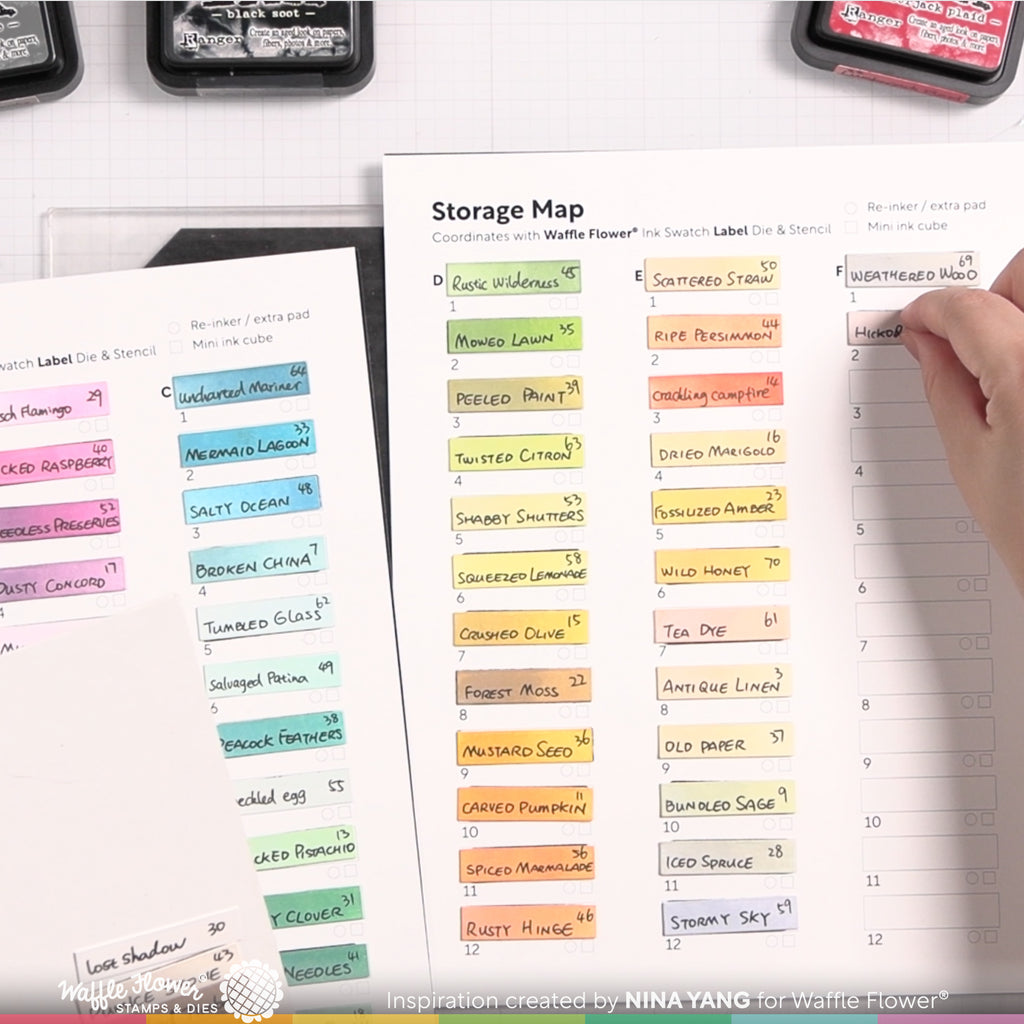 black soot
Ranger
Create an aged look on papers,
fibers, photos & more!
jack plaid
Ranger
Create an aged look on papers,
fibers, photos & more!
Re-inker / extra pad
Mini ink cube
watch Label Die & Stencil
sch Flamingo 29
CKED RASPBERRY 40
EEDLESS PRESERVES 52
DUSTY CONCORD 17
4
C
uncharted Mariner 64
1
MERMAID LAGOON 33
2
SALTY OCEAN 48
3
BROKEN CHINA 7
4
TUMBLED GLASS 62
5
salvaged Patina 49
6
PEACOCK FEATHERS 38
eckled egg 55
CKED PISTACHIO 13
Y CLOVER 31
NEEDLES 41
lost shadow 30
43
Storage Map
Coordinates with Waffle Flower® Ink Swatch Label Die & Stencil
Re-inker / extra pad
Mini ink cube
D
RUSTIC WILDERNESS 45
1
MOWED LAWN 35
2
PEELED PAINT 39
3
TWISTED CITRON 63
4
SHABBY SHUTTERS 53
5
SQUEEZED LEMONADE 58
6
CRUSHED OLIVE 15
7
FOREST MOSS 22
8
MUSTARD SEED 36
9
CARVED PUMPKIN 11
10
SPICED MARMALADE 56
11
RUSTY HINGE 46
12
E
SCATTERED STRAW 50
1
RIPE PERSIMMON 44
2
crackling campfire 14
3
DRIED MARIGOLD 16
4
FOSSILIZED AMBER 23
5
WILD HONEY 70
6
TEA DYE 61
7
ANTIQUE LINEN 3
8
OLD PAPER 37
9
BUNDLED SAGE 9
10
ICED SPRUCE 28
11
STORMY SKY 59
12
F
WEATHERED WOOD 69
1
HICKO
2
3
4
5
6
7
8
9
10
11
12
Waffle Flower®
STAMPS & DIES
Inspiration created by NINA YANG for Waffle Flower®